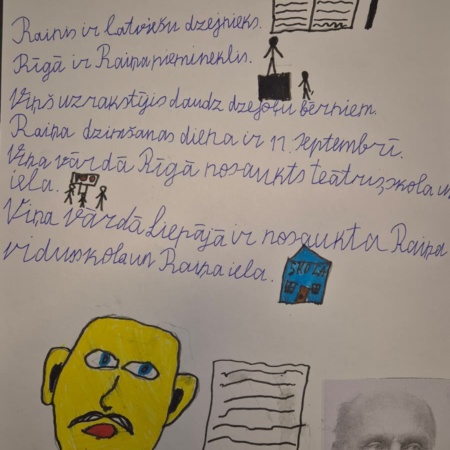 Rainis ir latviešu dzejnieks.
Rīgā ir Raiņa piemineklis.
Viņš uzrakstījis daudz dzejoļu bērniem.
Raiņa dzimšanas diena ir 11. septembrī.
Viņa vārdā Rīgā nosaukts teātris, skola un
iela.
Viņa vārdā Liepājā ir nosaukta Raiņa
vidusskola un Raiņa iela.
SKOLA